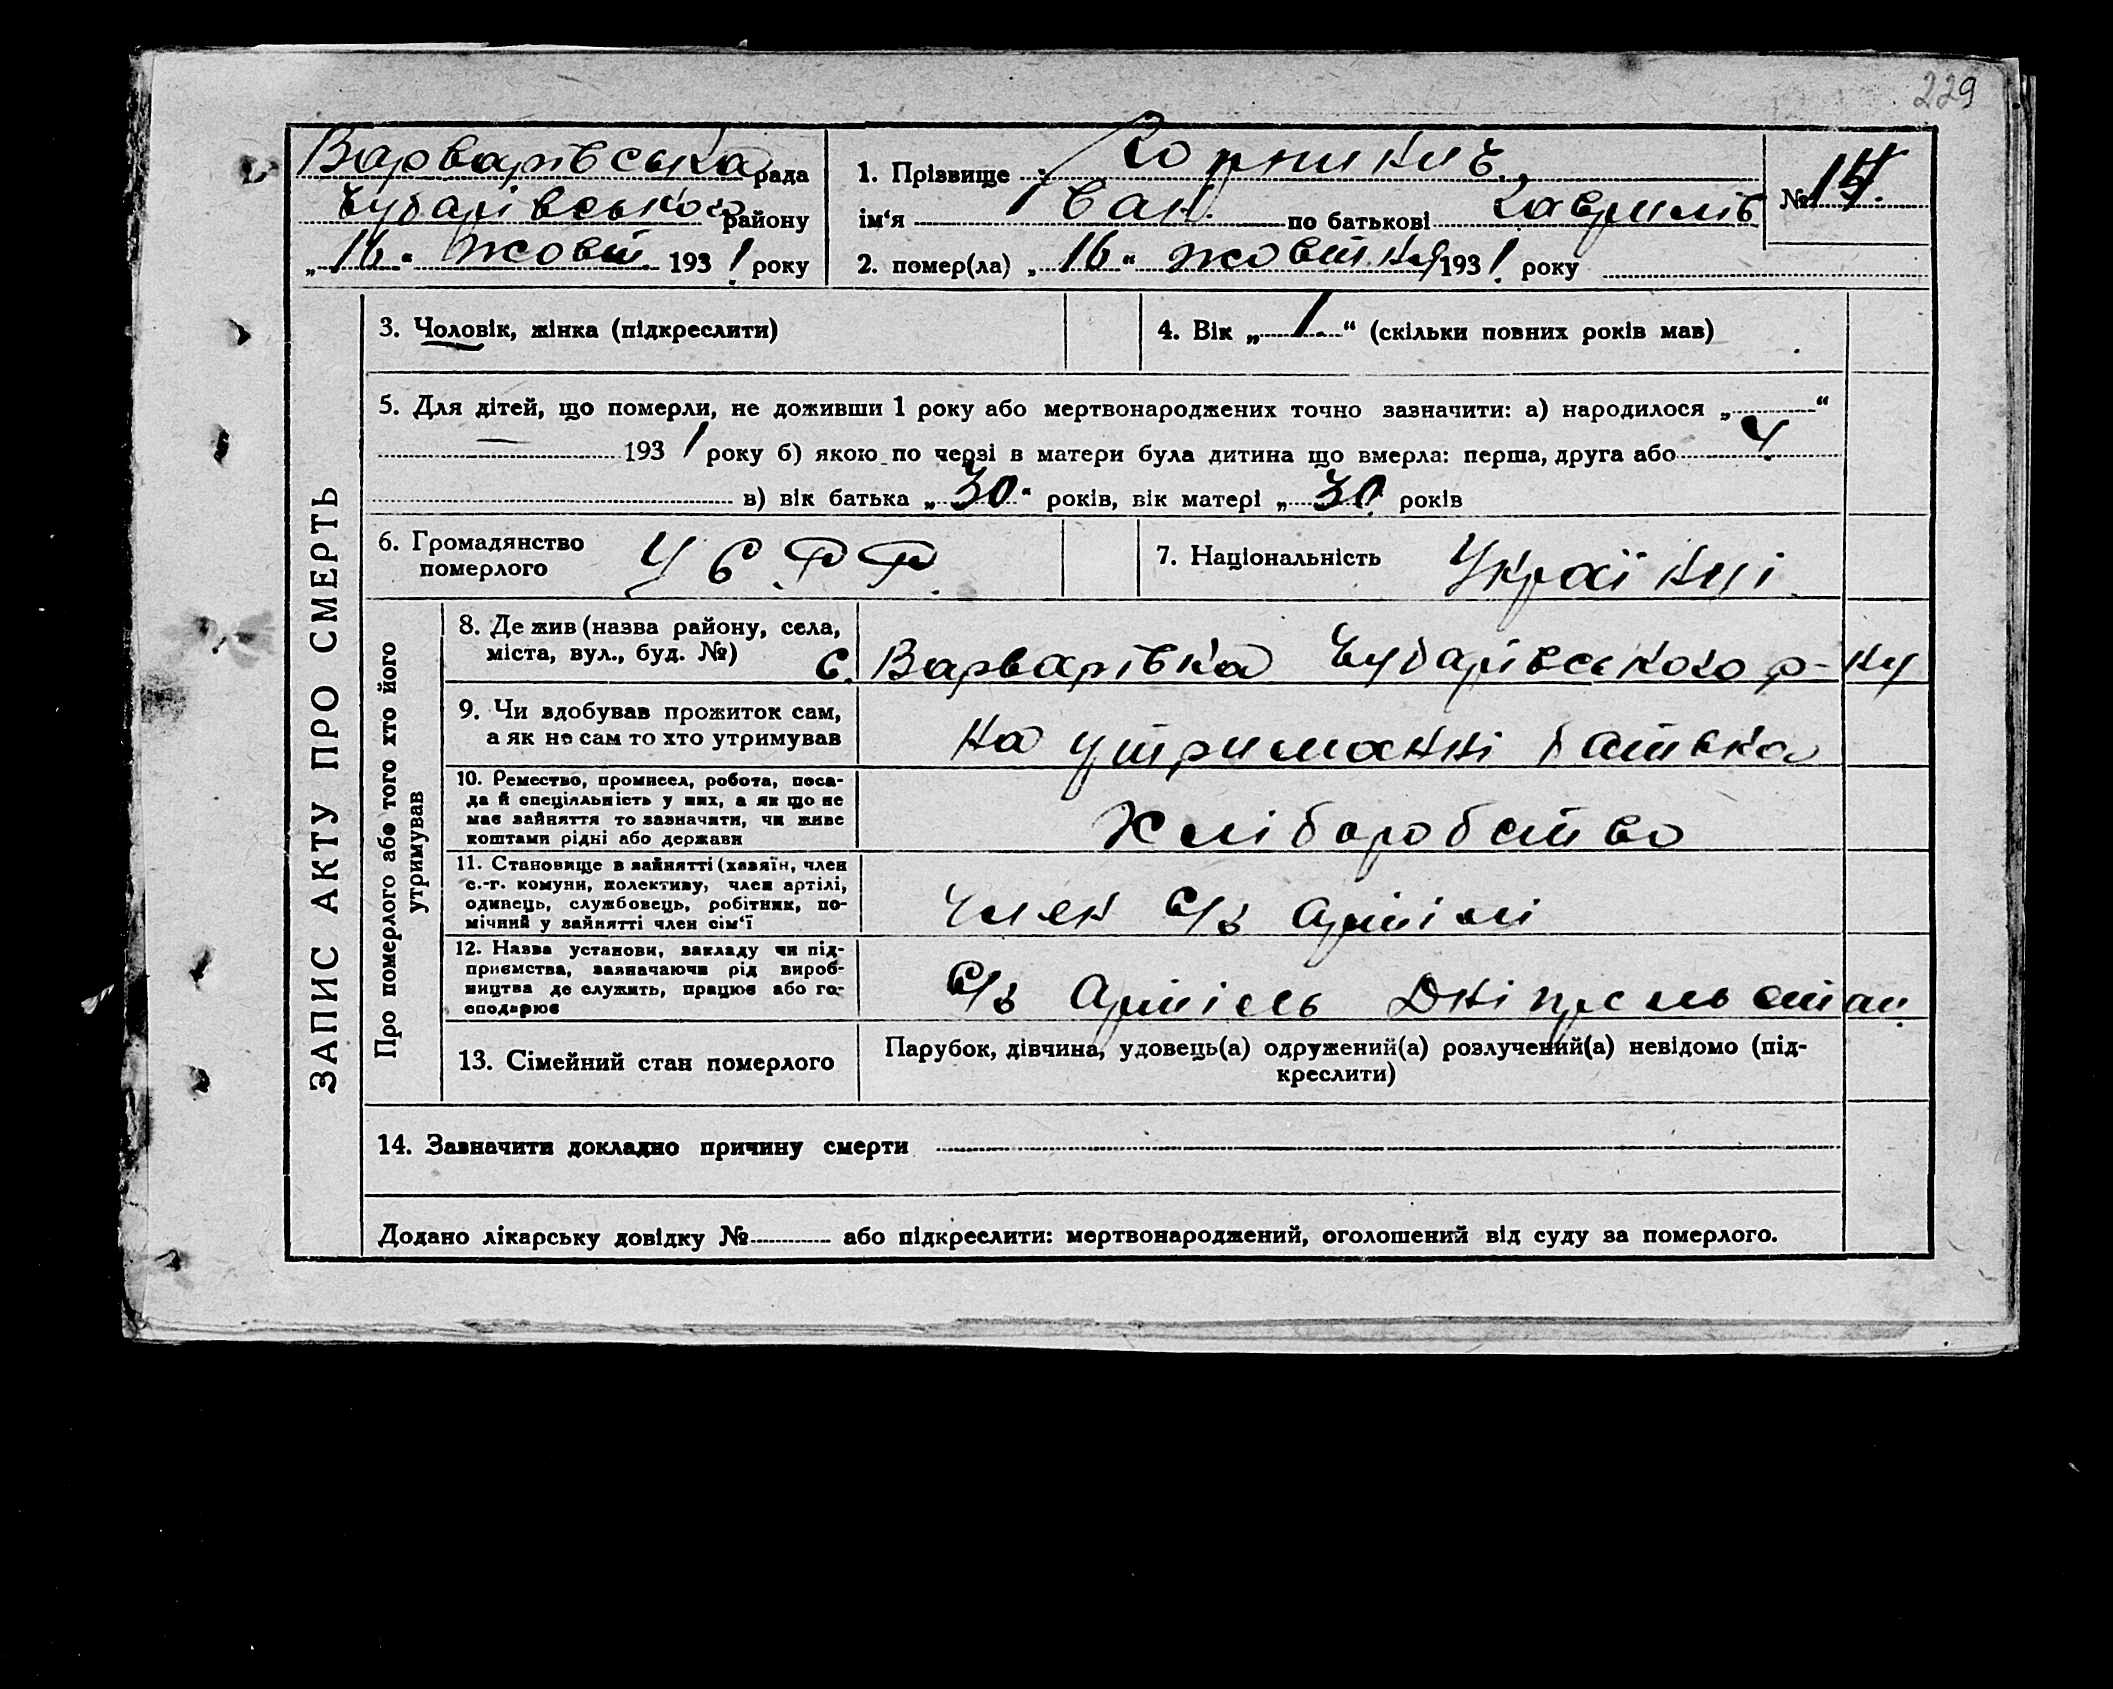 229
Варварівська рада
Чубарівського району
„16“ жовт. 1931 року
1. Прізвище
ім‘я Іван. по батькові Гаврилів
2. помер(ла) „16“ жовтня 1931 року
№ 14.
ЗАПИС АКТУ ПРО СМЕРТЬ
3. Чоловік, жінка (підкреслити)
4. Вік „1.“ (скільки повних років мав)
5. Для дітей, що померли, не доживши 1 року або мертвонароджених точно зазначити: а) народилося „ “
— 1931 року б) якою по черзі в матери була дитина що вмерла: перша, друга або 4
в) вік батька „30“ років, вік матері „30 років
6. Громадянство
померлого УСРР.
7. Національність Українці
Про померлого або того хто його
утримував
8. Де жив (назва району, села,
міста, вул., буд. №) С. Варварівка Чубарівського р-ну
9. Чи здобував прожиток сам,
а як не сам то хто утримував На утриманні батька
10. Ремество, промисел, робота, поса-
да й спеціяльність у них, а як що не
має зайняття то зазначити, чи живе
коштами рідні або держави
Хліборобство
11. Становище в зайнятті (хазяїн, член
с.-г. комуни, колективу, член артілі,
одинець, службовець, робітник, по-
мічний у зайнятті член сім‘ї
Член С/г Артілі
12. Назва установи, закладу чи під-
приємства, зазначаючи рід вироб-
ництва де служить, працює або го-
сподарює
С/г Артіль Дніпрельстан
13. Сімейний стан померлого
Парубок, дівчина, удовець(а) одружений(а) розлучений(а) невідомо (під-
креслити)
14. Зазначити докладно причину смерти
Додано лікарську довідку № або підкреслити: мертвонароджений, оголошений від суду за померлого.